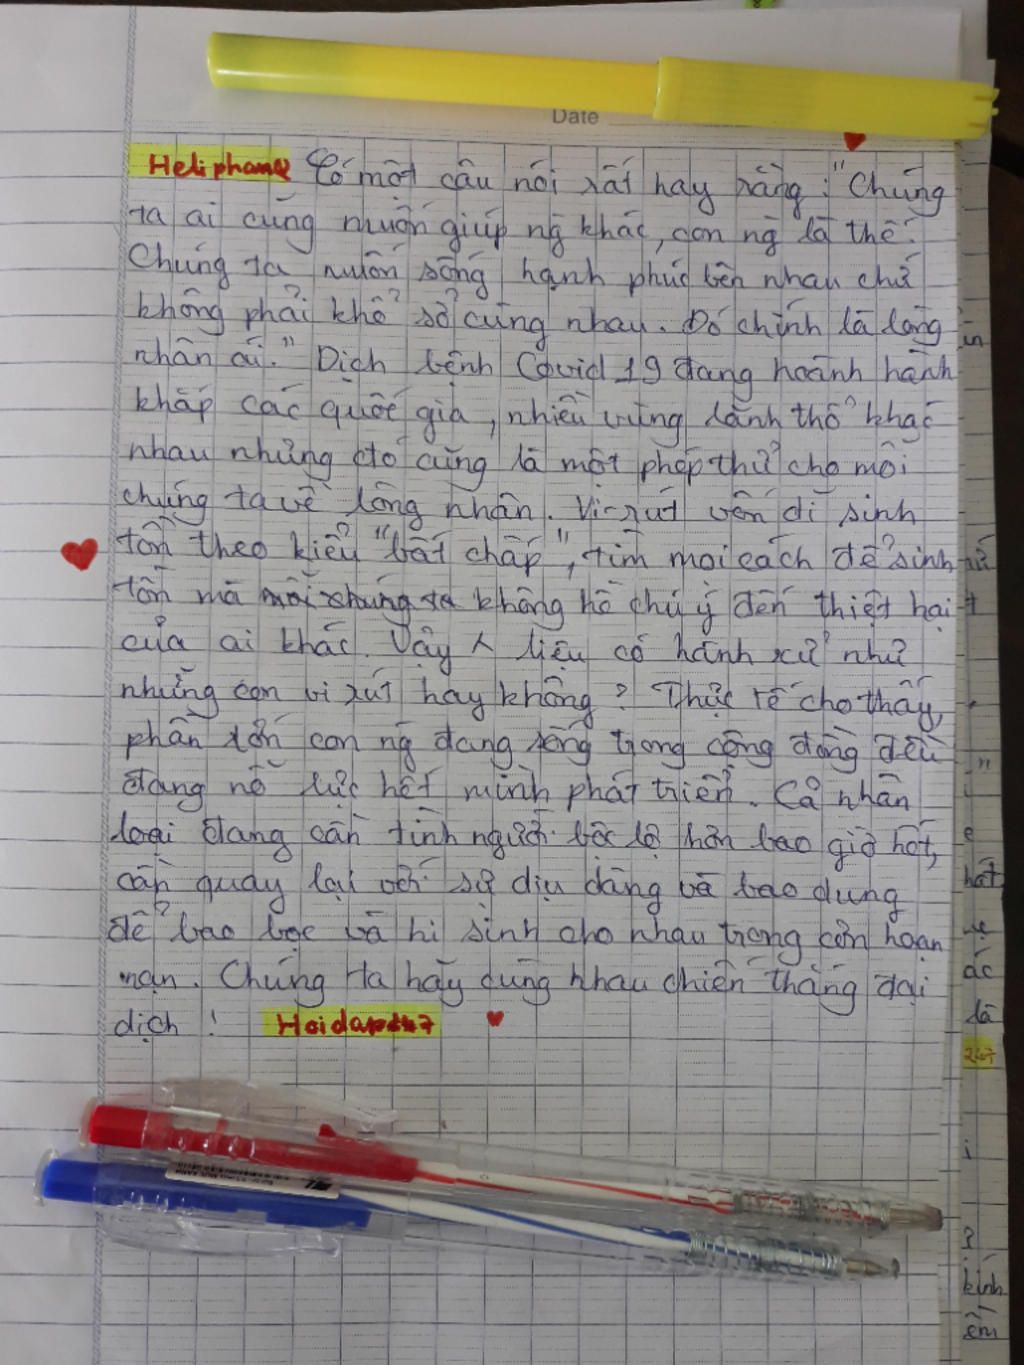 Date
Heliphame Có một câu nói rất hay rằng: "Chúng
ta ai cũng muốn giúp ng khác, con ng là thế.
Chúng ta muốn sống hạnh phúc bên nhau chứ
không phải khổ sở cùng nhau. Đó chính là lòng
nhân ái." Dịch bệnh Covid 19 đang hoành hành
khắp các quốc gia, nhiều vùng lãnh thổ khác
nhau nhưng đó cũng là một phép thử cho mỗi
chúng ta về lòng nhân. Vi-rút vốn dĩ sinh
tồn theo kiểu "bất chấp", tìm mọi cách để sinh
tồn mà không hề chú ý đến thiệt hại
của ai khác. Vậy liệu có hành xử như
những con vi rút hay không? Thực tế cho thấy,
phần lớn con ng đang sống trong cộng đồng đều
đang nỗ lực hết mình phát triển. Cả nhân
loại đang cần tình người bộc lộ hơn bao giờ hết,
cần quay lại với sự dịu dàng và bao dung
để bao bọc và hi sinh cho nhau trong cơn hoạn
nạn. Chúng ta hãy cùng nhau chiến thắng đại
dịch! Hoidap247
247
i
?
kính